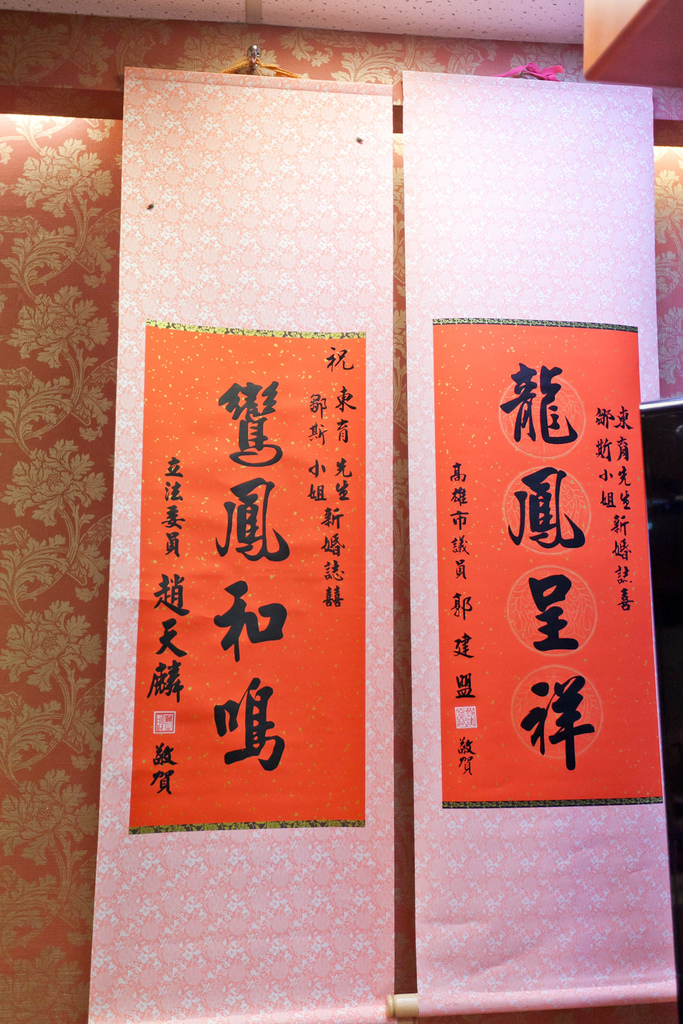 東育先生新婚誌喜
鄒斯小姐
龍鳳呈祥
高雄市議員 郭建盟
敬賀
祝 東育 先生新婚誌囍
鄒斯 小姐
鸞鳳和鳴
立法委員 趙天麟
敬賀